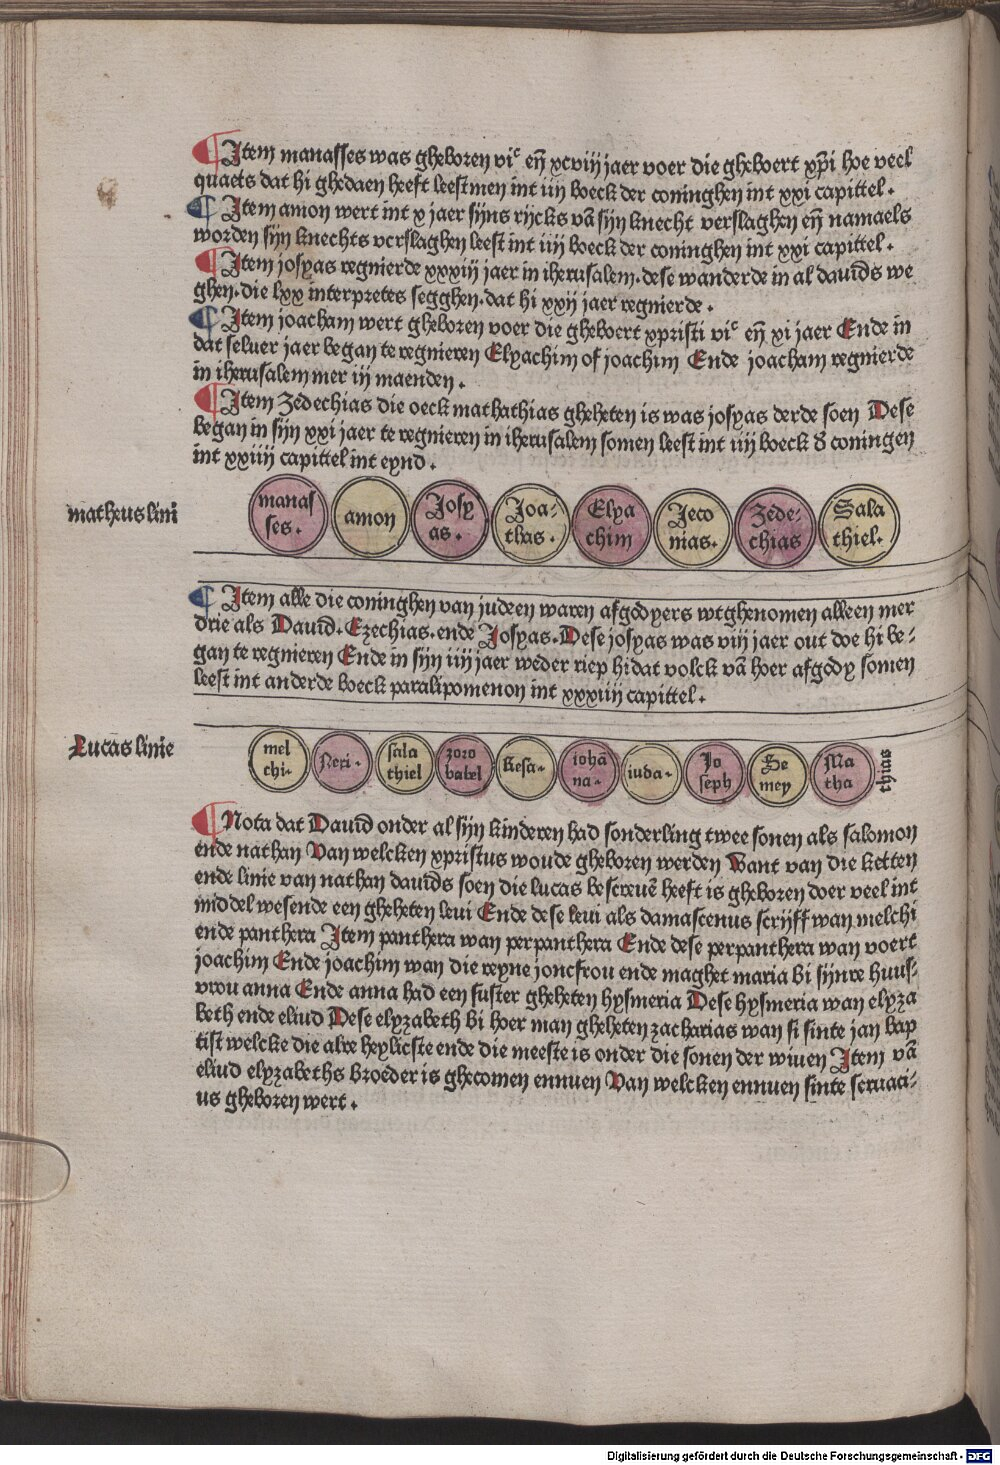 ¶ Item manasses was gheboren viᶜ eñ xcviij jaer voer die gheboert xp̄i hoe veel
quaets dat hi ghedaen heeft leestmen int iiij boeck der coninghen int xxi capittel.
¶ Item amon wert int x jaer sijns rijcks vā sijn knecht verslaghen eñ namaels
worden sijn knechts verslaghen leest int iiij boeck der coninghen int xxi capittel.
¶ Item josyas regnierde xxxiij jaer in iherusalem. dese wanderde in al dauids we
ghen. die lxx interpretes segghen. dat hi xxij jaer regnierde.
¶ Item joacham wert gheboren voer die gheboert xpristi viᶜ eñ xi jaer Ende in
dat seluer jaer began te regnieren Elyachim of joachim Ende joacham regnierde
in iherusalem mer iij maenden.
¶ Item Zedechias die oeck mathathias gheheten is was josyas derde soen Dese
began in sijn xxi jaer te regnieren in iherusalem somen leest int iiij boeck d' coningen
int xxiiij capittel int eynd.
matheus lini
manas
ses.
amon
Josy
as.
Joa-
thas.
Elya
chim
Jeco
nias.
Zede-
chias
Sala
thiel.
¶ Item alle die coninghen van judeen waren afgodyers wtghenomen alleen mer
drie als Dauid. Ezechias. ende Josyas. Dese josyas was viij jaer out doe hi be-
gan te regnieren Ende in sijn iiij jaer weder riep hi dat volck vā hoer afgody somen
leest int anderde boeck paralipomenon int xxxiiij capittel.
Lucas linie
mel
chi.
Neri.
sala
thiel
zoro
babel
Resa.
iohā
na.
iuda.
Jo
seph
Se
mey
Ma
tha
thias
¶ Nota dat Dauid onder al sijn kinderen had sonderling twee sonen als salomon
ende nathan Van welcken xpristus woude gheboren werden Want van die ketten
ende linie van nathan dauids soen die lucas bescreuē heeft is gheboren doer veel int
middel wesende een gheheten leui Ende dese leui als damascenus scrijft wan melchi
ende panthera Item panthera wan perpanthera Ende dese perpanthera wan voert
joachim Ende joachim wan die reyne joncfrou ende maghet maria bi sijnre huus-
vrou anna Ende anna had een suster gheheten hysmeria Dese hysmeria wan elyza
beth ende eliud Dese elyzabeth bi hoer man gheheten zacharias wan si sinte jan bap
tist welcke die alre heylicste ende die meeste is onder die sonen der wiuen Item vā
eliud elyzabeths broeder is ghecomen ennuen Van welcken ennuen sinte seruaci-
us gheboren wert.
Digitalisierung gefördert durch die Deutsche Forschungsgemeinschaft - DFG